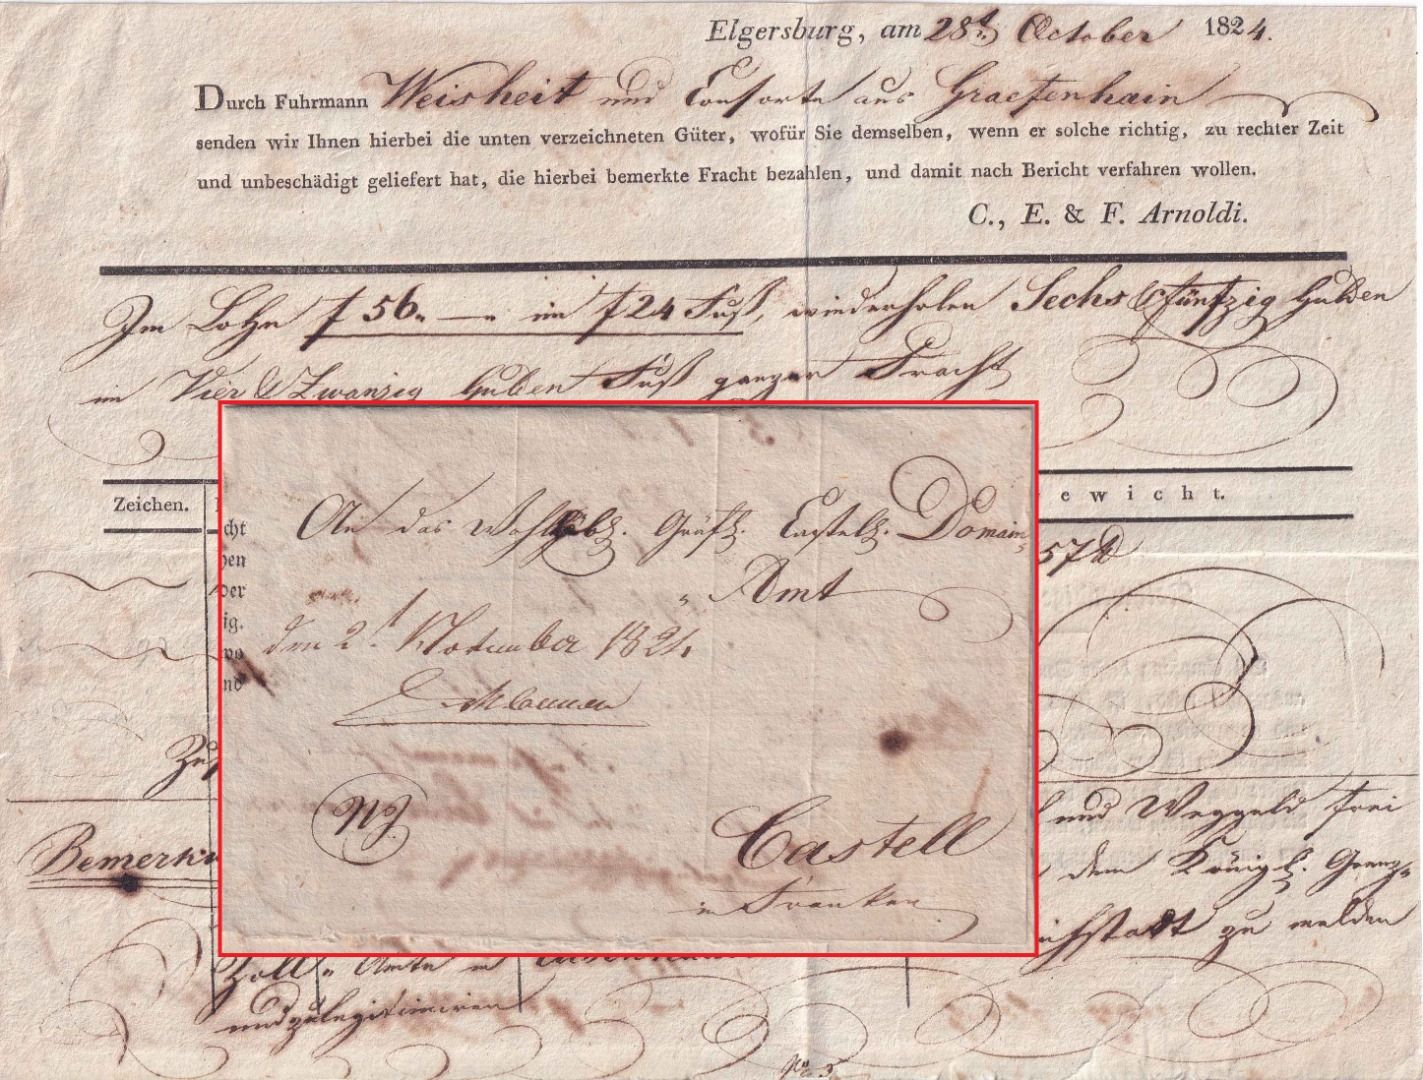 Elgersburg, am 28t. October 1824.
Durch Fuhrmann Weisheit und Consorte aus Graefenhain
senden wir Ihnen hierbei die unten verzeichneten Güter, wofür Sie demselben, wenn er solche richtig, zu rechter Zeit
und unbeschädigt geliefert hat, die hierbei bemerkte Fracht bezahlen, und damit nach Bericht verfahren wollen.
C., E. & F. Arnoldi.
Im Lohn f 56. — im f 24 Fuß, wiederholen Sechs & fünfzig Gulden
im Vier & Zwanzig Gulden Fuß ganzer Fracht
Zeichen.
ewicht.
57
An das Gräfl. Castell. Domain
Amt
cht
ben
der
ig.
wo
nd
den 2t. November 1824.
Castell
in Franken
und Weggeld frei
Bemerku
dem Königl. Grenz-
ichstadt zu melden
Zoll-Amte in
und zu legitimiren
No. 3